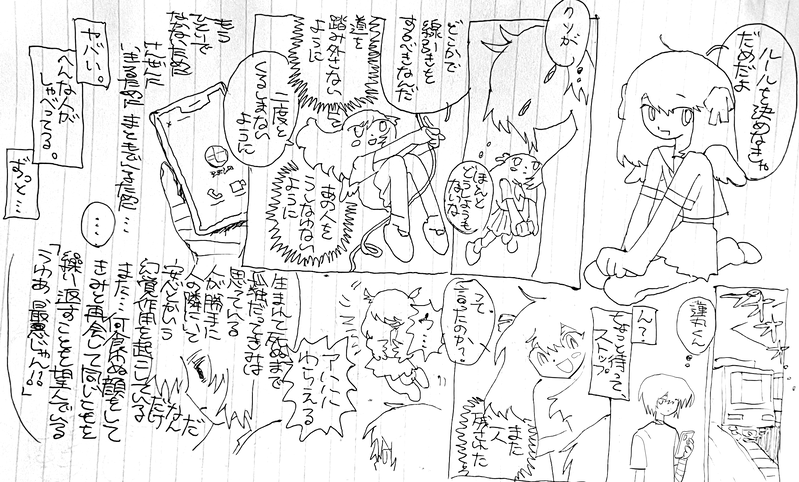 ルールを決めなきゃ
だめだよ
クソが
ほんと
どうしようも
ないな
どこかで
線引きを
するべきなんだ
道を
踏み外さない
ように
二度と
くるしまない
ように
あの人を
うしなわない
ように
もう
ひといで
ヤバい。
へんな人が
しゃべってる。
ずっと…
蓮太くん
ん？
ちょっと待って、
ストップ。
また
一人
って
言ったのか？
ウッ…
アハハ
わらえる
なん
だけ
生まれて死ぬまで
孤独だってきみは
思っている
人が勝手に
の隣にいて
安心とかいう
幻覚作用を起こしている
また…何食わぬ顔をして
きみと再会して同いことを
繰り返すことを望んでいる
「うゆあ、最悪じゃん??」
…